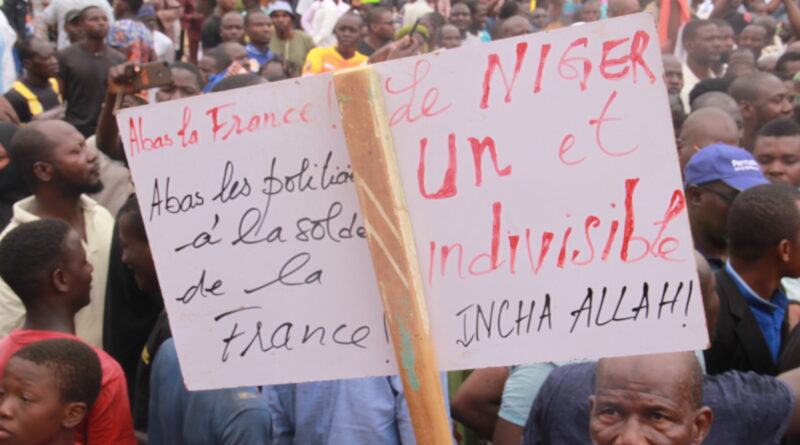 Abas la France!
Abas les politicie
à la solde
de la
France!
Le NIGER
Un et
indivisible
INCHA ALLAH!